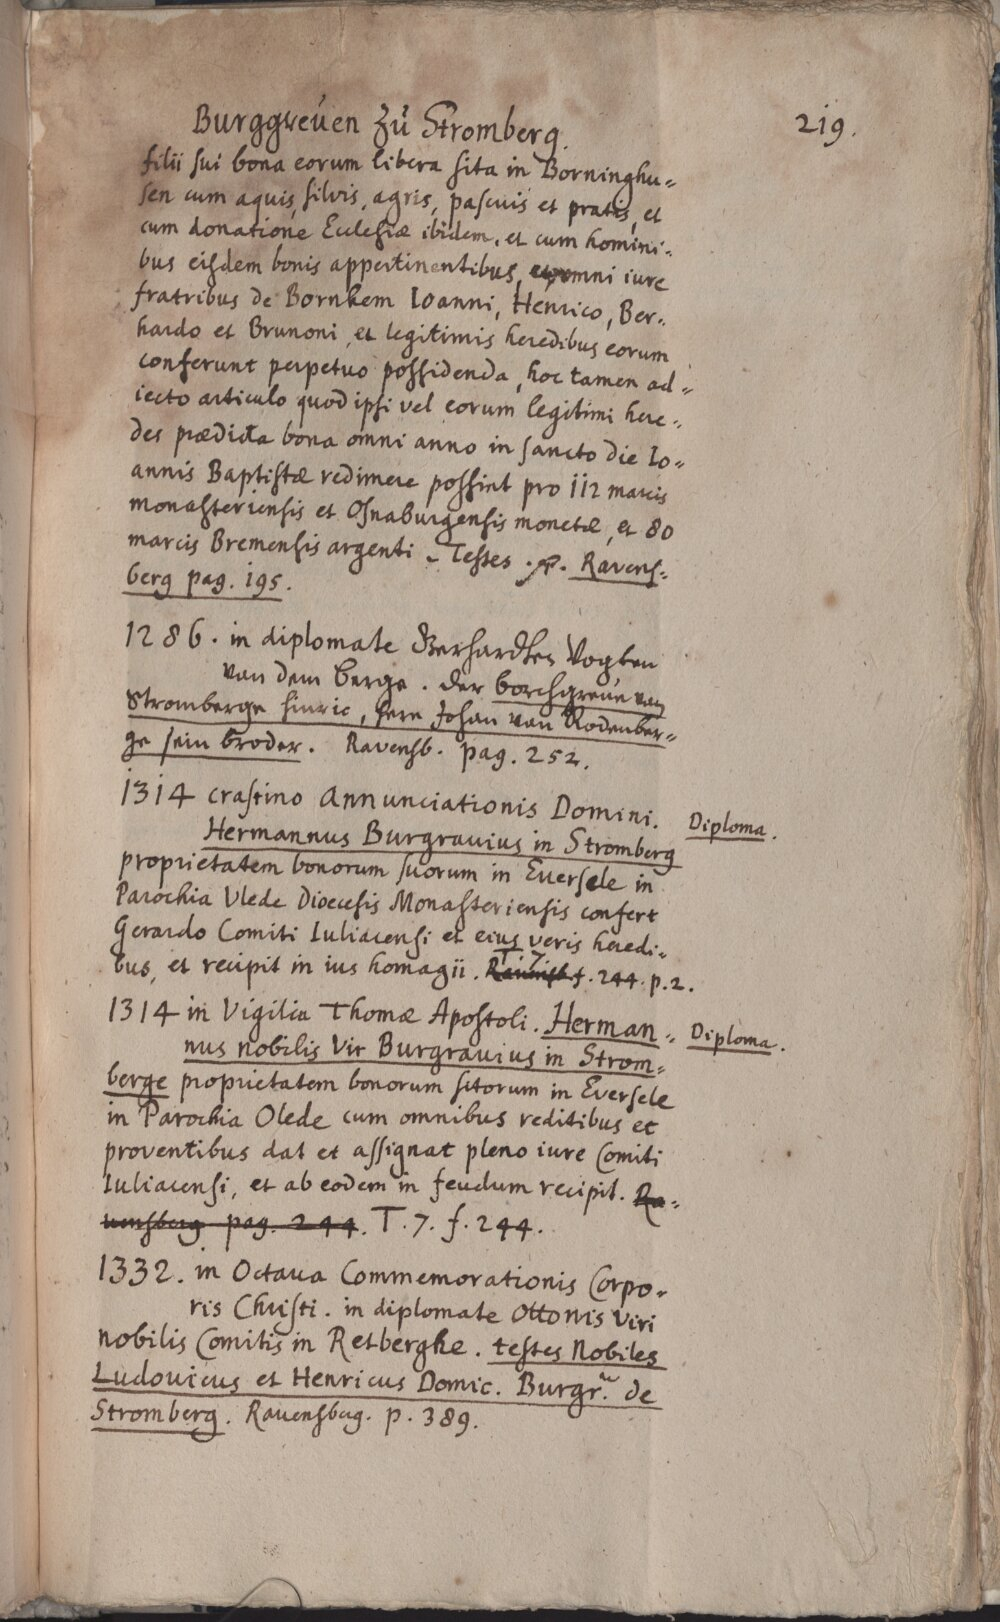 Burggreven zu Stromberg.
219.
filii sui bona eorum libera sita in Borninghu=
sen cum aquis, silvis, agris, pascuis et pratis, et
cum donatione Ecclesiæ ibidem, et cum homini=
bus eisdem bonis appertinentibus, omni iure
fratribus de Bornhem Ioanni, Henrico, Ber=
hardo et Brunoni, et legitimis heredibus eorum
conferunt perpetuo possidenda, hoc tamen ad=
iecto articulo quod ipsi vel eorum legitimi here=
des prædicta bona omni anno in sancto die Io=
annis Baptistæ redimere possint pro 112 marcis
monasteriensis et Osnaburgensis monetæ, et 80
marcis Bremensis argenti. Testes. Ravens=
berg pag. 195.
1286. in diplomate Gerhardten Vogten
van dem berge. der borchgreve van
Stromberge hinric, here Johan van Rodenber=
ge sein broder. Ravensb. pag. 252.
1314 crastino Annunciationis Domini.
Diploma.
Hermannus Burgravius in Stromberg
proprietatem bonorum suorum in Eversele in
Parochia Vlede Dioecesis Monasteriensis confert
Gerardo Comiti Iuliacensi et eius veris heredi=
bus, et recipit in ius homagii. T. 7. f. 244. p. 2.
1314 in Vigilia Thomæ Apostoli. Herman=
Diploma.
nus nobilis Vir Burgravius in Strom=
berge proprietatem bonorum sitorum in Eversele
in Parochia Olede cum omnibus reditibus et
proventibus dat et assignat pleno iure Comiti
Iuliacensi, et ab eodem in feudum recipit. Ra=
vensberg pag. 244. T. 7. f. 244.
1332. in Octava Commemorationis Corpo=
ris Christi. in diplomate Ottonis Viri
nobilis Comitis in Retberghe. testes Nobiles
Ludovicus et Henricus Domic. Burgr. de
Stromberg. Ravensberg. p. 389.